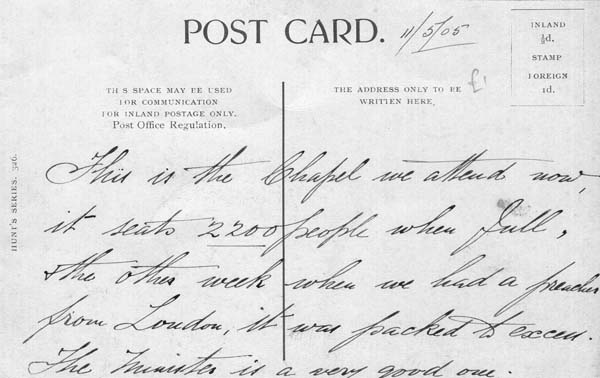 POST CARD. 11/5/05
INLAND
½d.
STAMP
FOREIGN
1d.
£1
TH S SPACE MAY BE USED
FOR COMMUNICATION
FOR INLAND POSTAGE ONLY.
Post Office Regulation.
THE ADDRESS ONLY TO BE
WRITTEN HERE.
HUNT'S SERIES. 326.
This is the Chapel we attend now,
it seats 2200 people when full,
& the other week when we had a preacher
from London, it was packed to excess.
The Minister is a very good one.